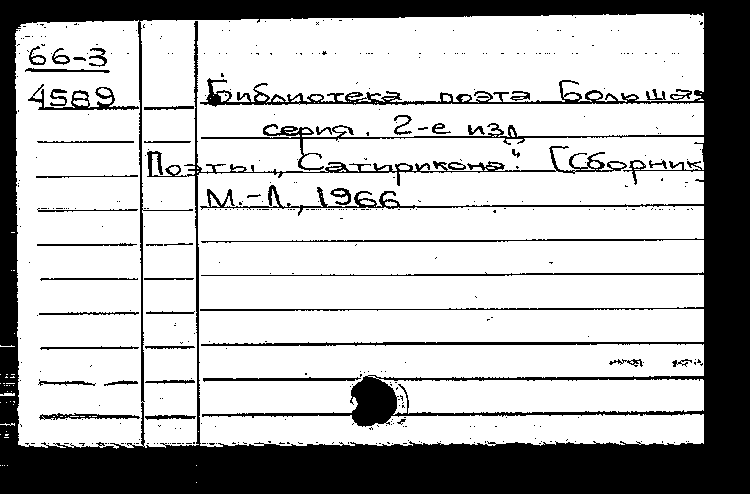 66-3
4589
Библиотека поэта. Большая
серия. 2-е изд.
Поэты „Сатирикона“. [Сборник]
М.-Л., 1966